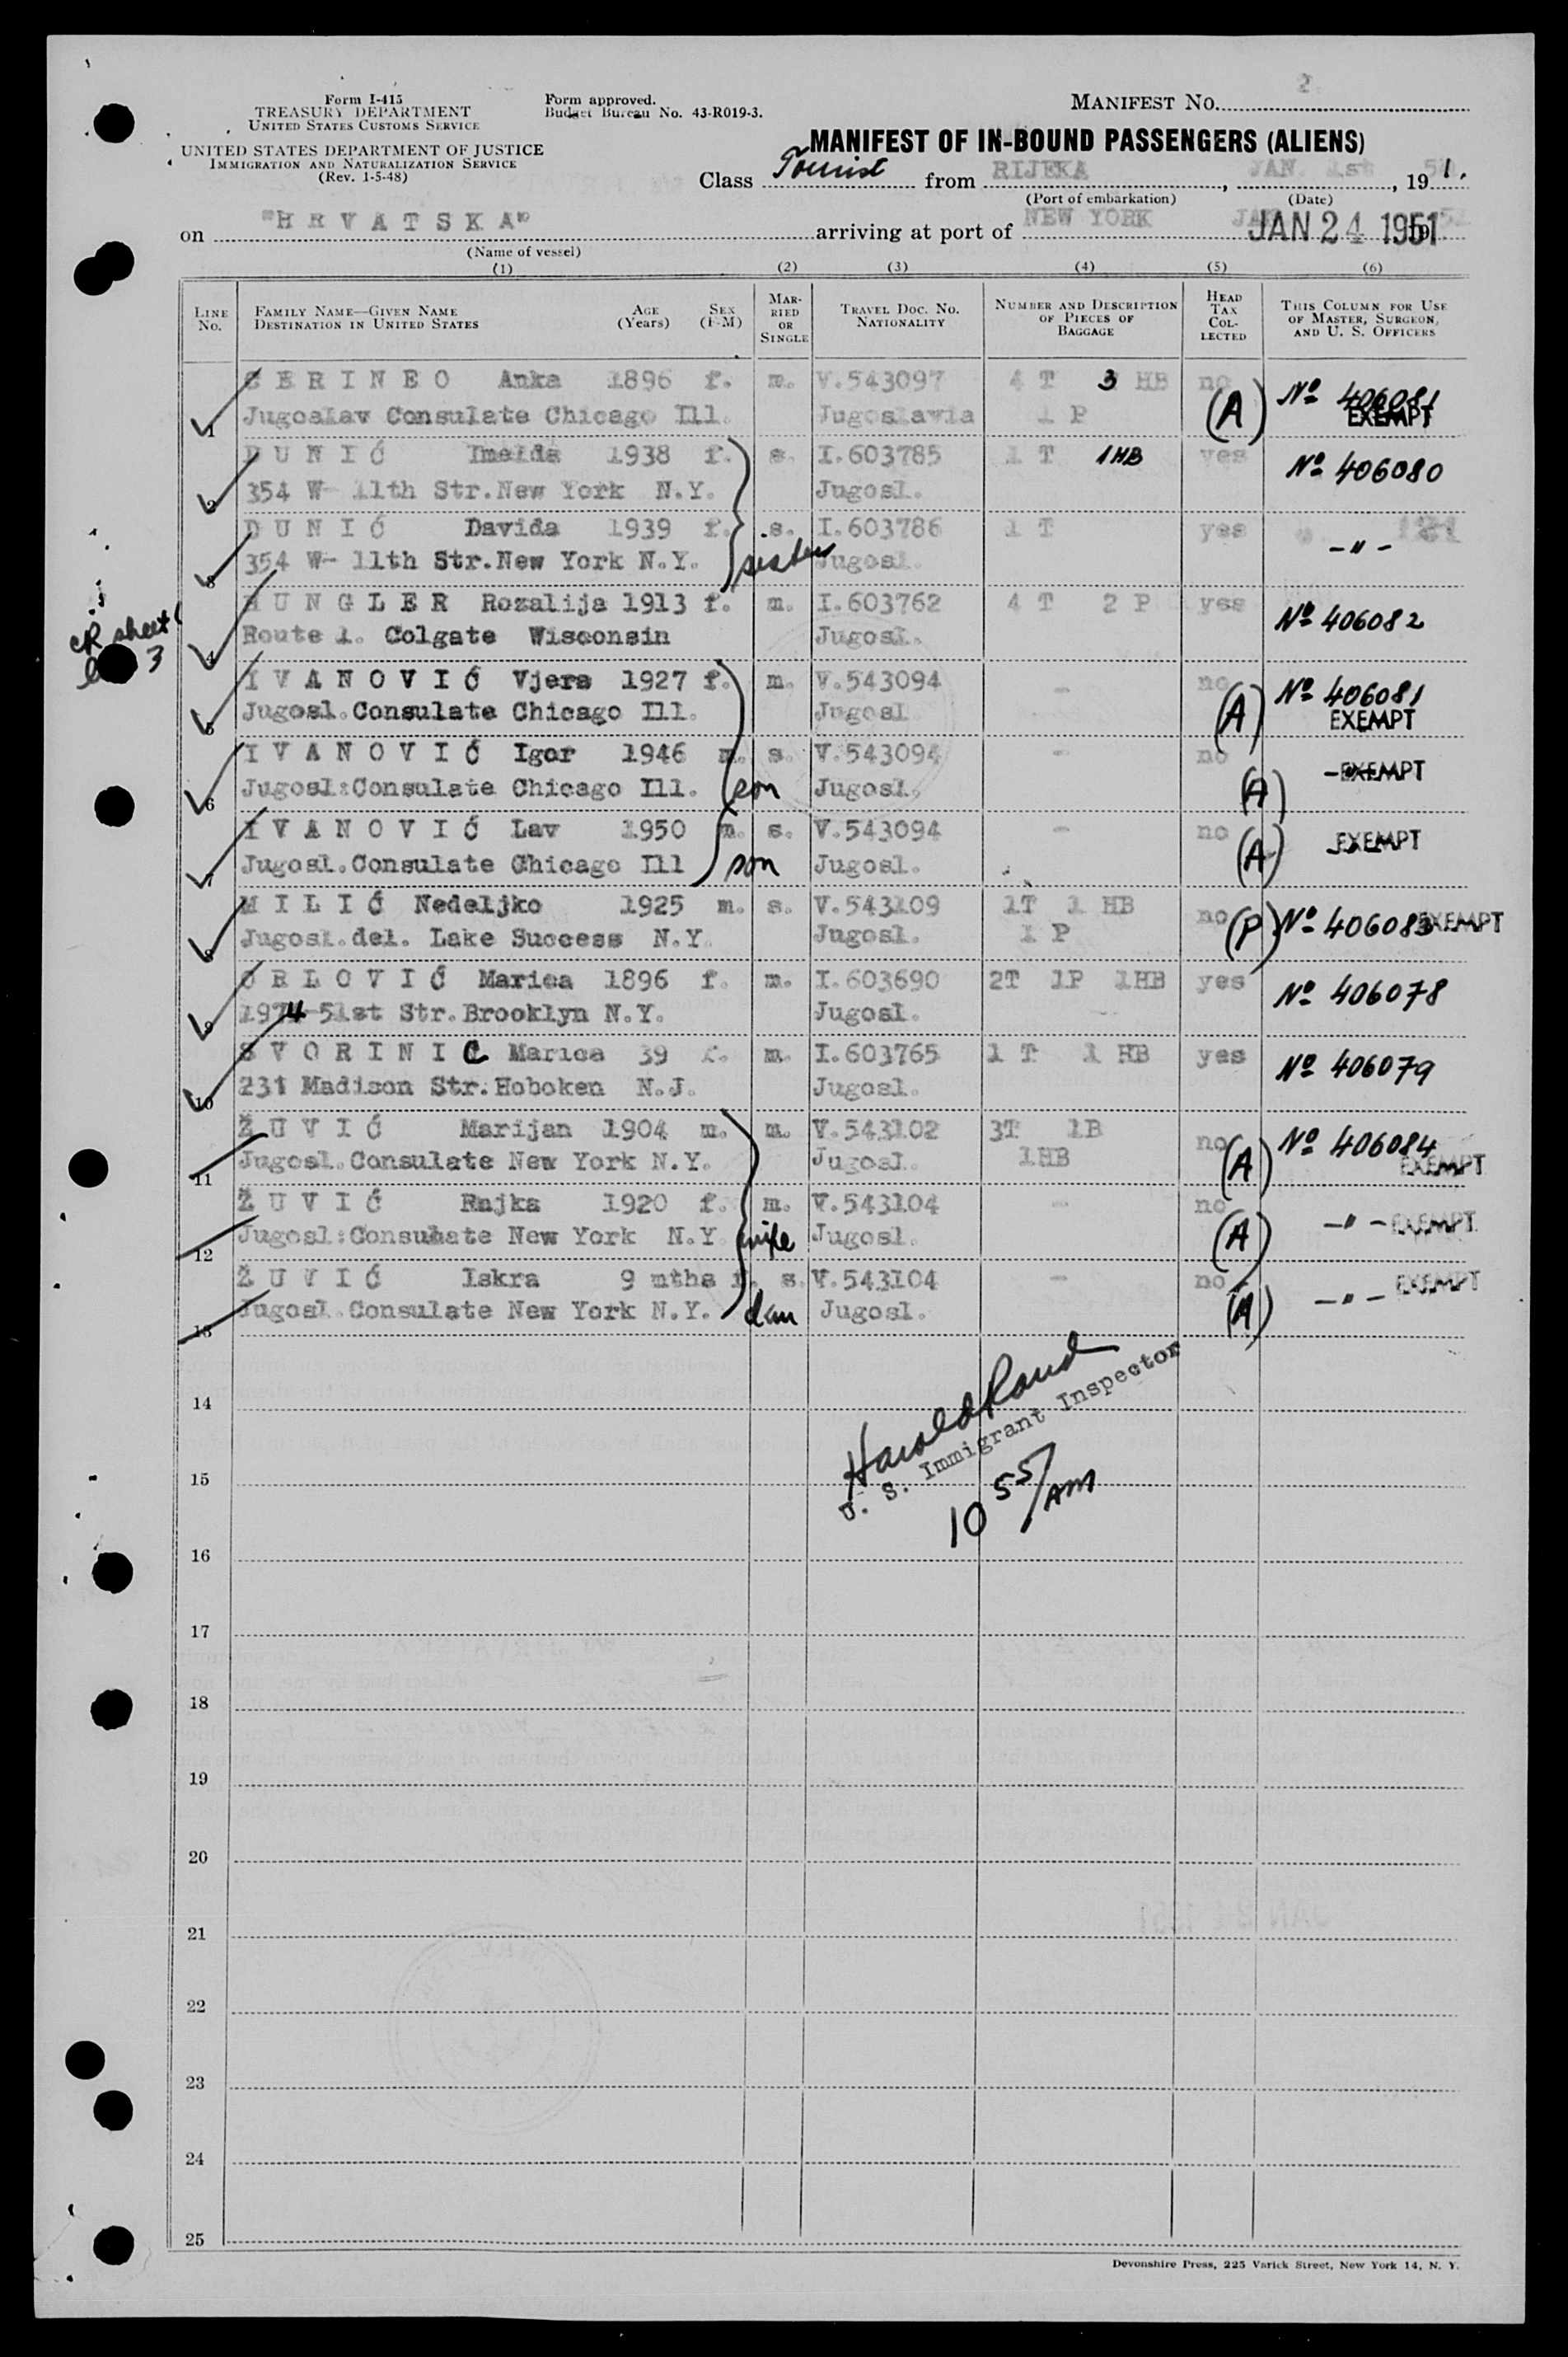 Form I-415
TREASURY DEPARTMENT
UNITED STATES CUSTOMS SERVICE
UNITED STATES DEPARTMENT OF JUSTICE
IMMIGRATION AND NATURALIZATION SERVICE
(Rev. 1-5-48)
Form approved.
Budget Bureau No. 43-R019-3.
MANIFEST No. 2
MANIFEST OF IN-BOUND PASSENGERS (ALIENS)
Class Tourist from RIJEKA, JAN. 1st, 19 51.
(Port of embarkation) (Date)
on "HRVATSKA" arriving at port of NEW YORK JAN 24 1951
(Name of vessel)
(1) (2) (3) (4) (5) (6)
LINE No. FAMILY NAME—GIVEN NAME DESTINATION IN UNITED STATES AGE (Years) SEX (F-M) MARRIED OR SINGLE TRAVEL DOC. NO. NATIONALITY NUMBER AND DESCRIPTION OF PIECES OF BAGGAGE HEAD TAX COLLECTED THIS COLUMN FOR USE OF MASTER, SURGEON, AND U. S. OFFICERS
SERINEO Anka 1896 f. m. V.543097 4 T 3 HB no No 406081
1 Jugoslav Consulate Chicago Ill. Jugoslawia 1 P (A) EXEMPT
DUNIĆ Imelda 1938 f. s. I.603785 1 T 1 HB yes No 406080
2 354 W- 11th Str.New York N.Y. Jugosl.
DUNIĆ Davida 1939 f. s. I.603786 1 T yes
3 354 W- 11th Str.New York N.Y. sister Jugosl. -"-
HUNGLER Rozalija 1913 f. m. I.603762 4 T 2 P yes No 406082
4 Route 1. Colgate Wisconsin Jugosl.
CR sheet
3
IVANOVIĆ Vjera 1927 f. m. V.543094 - no No 406081
5 Jugosl.Consulate Chicago Ill. Jugosl (A) EXEMPT
IVANOVIĆ Igor 1946 m. s. V.543094 - no -"- EXEMPT
6 Jugosl:Consulate Chicago Ill. son Jugosl. (A)
IVANOVIĆ Lav 1950 m. s. V.543094 - no EXEMPT
7 Jugosl.Consulate Chicago Ill son Jugosl. (A)
MILIĆ Nedeljko 1925 m. s. V.543109 1T 1 HB no (P) No 406083 EXEMPT
8 Jugosl.del. Lake Success N.Y. Jugosl. 1 P
ORLOVIĆ Marica 1896 f. m. I.603690 2T 1P 1HB yes No 406078
9 1974-51st Str.Brooklyn N.Y. Jugosl.
SVORINIC Marica 39 f. m. I.603765 1 T 1 HB yes No 406079
10 231 Madison Str.Hoboken N.J. Jugosl.
ŽUVIĆ Marijan 1904 m. m. V.543102 3T 1B no No 406084
11 Jugosl.Consulate New York N.Y. Jugosl. 1HB (A) EXEMPT
ŽUVIĆ Rajka 1920 f. m. V.543104 - no -"- EXEMPT
12 Jugosl:Consuhate New York N.Y wife Jugosl. (A)
ŽUVIĆ Iskra 9 mths f. s. V.543104 - no -"- EXEMPT
13 Jugosl.Consulate New York N.Y. dau Jugosl. (A)
Harold Rand
U. S. Immigrant Inspector
10 55/AM
14
15
16
17
18
19
20
21
22
23
24
25
Devonshire Press, 225 Varick Street, New York 14, N. Y.